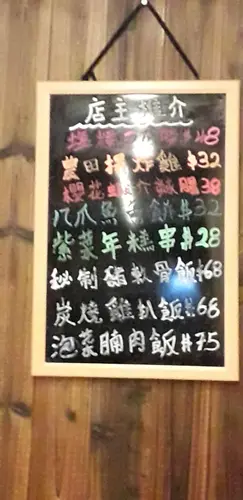 店主推介
$48
農田炸雞$32
櫻花 38
八爪魚 $32
紫菜年糕串$28
秘制豬軟骨飯$68
炭燒雞扒飯$68
泡菜腩肉飯$75